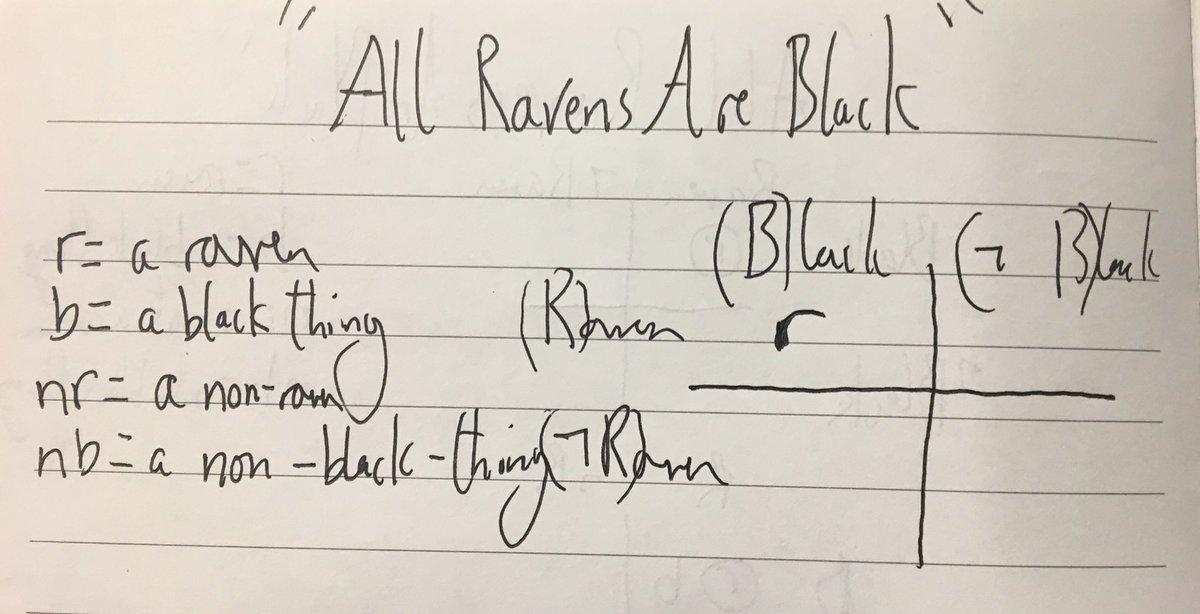 "All Ravens Are Black"
r = a raven
b = a black thing
nr = a non-raven
nb = a non-black-thing
(B)lack (¬ B)lack
(R)aven r
(¬R)aven